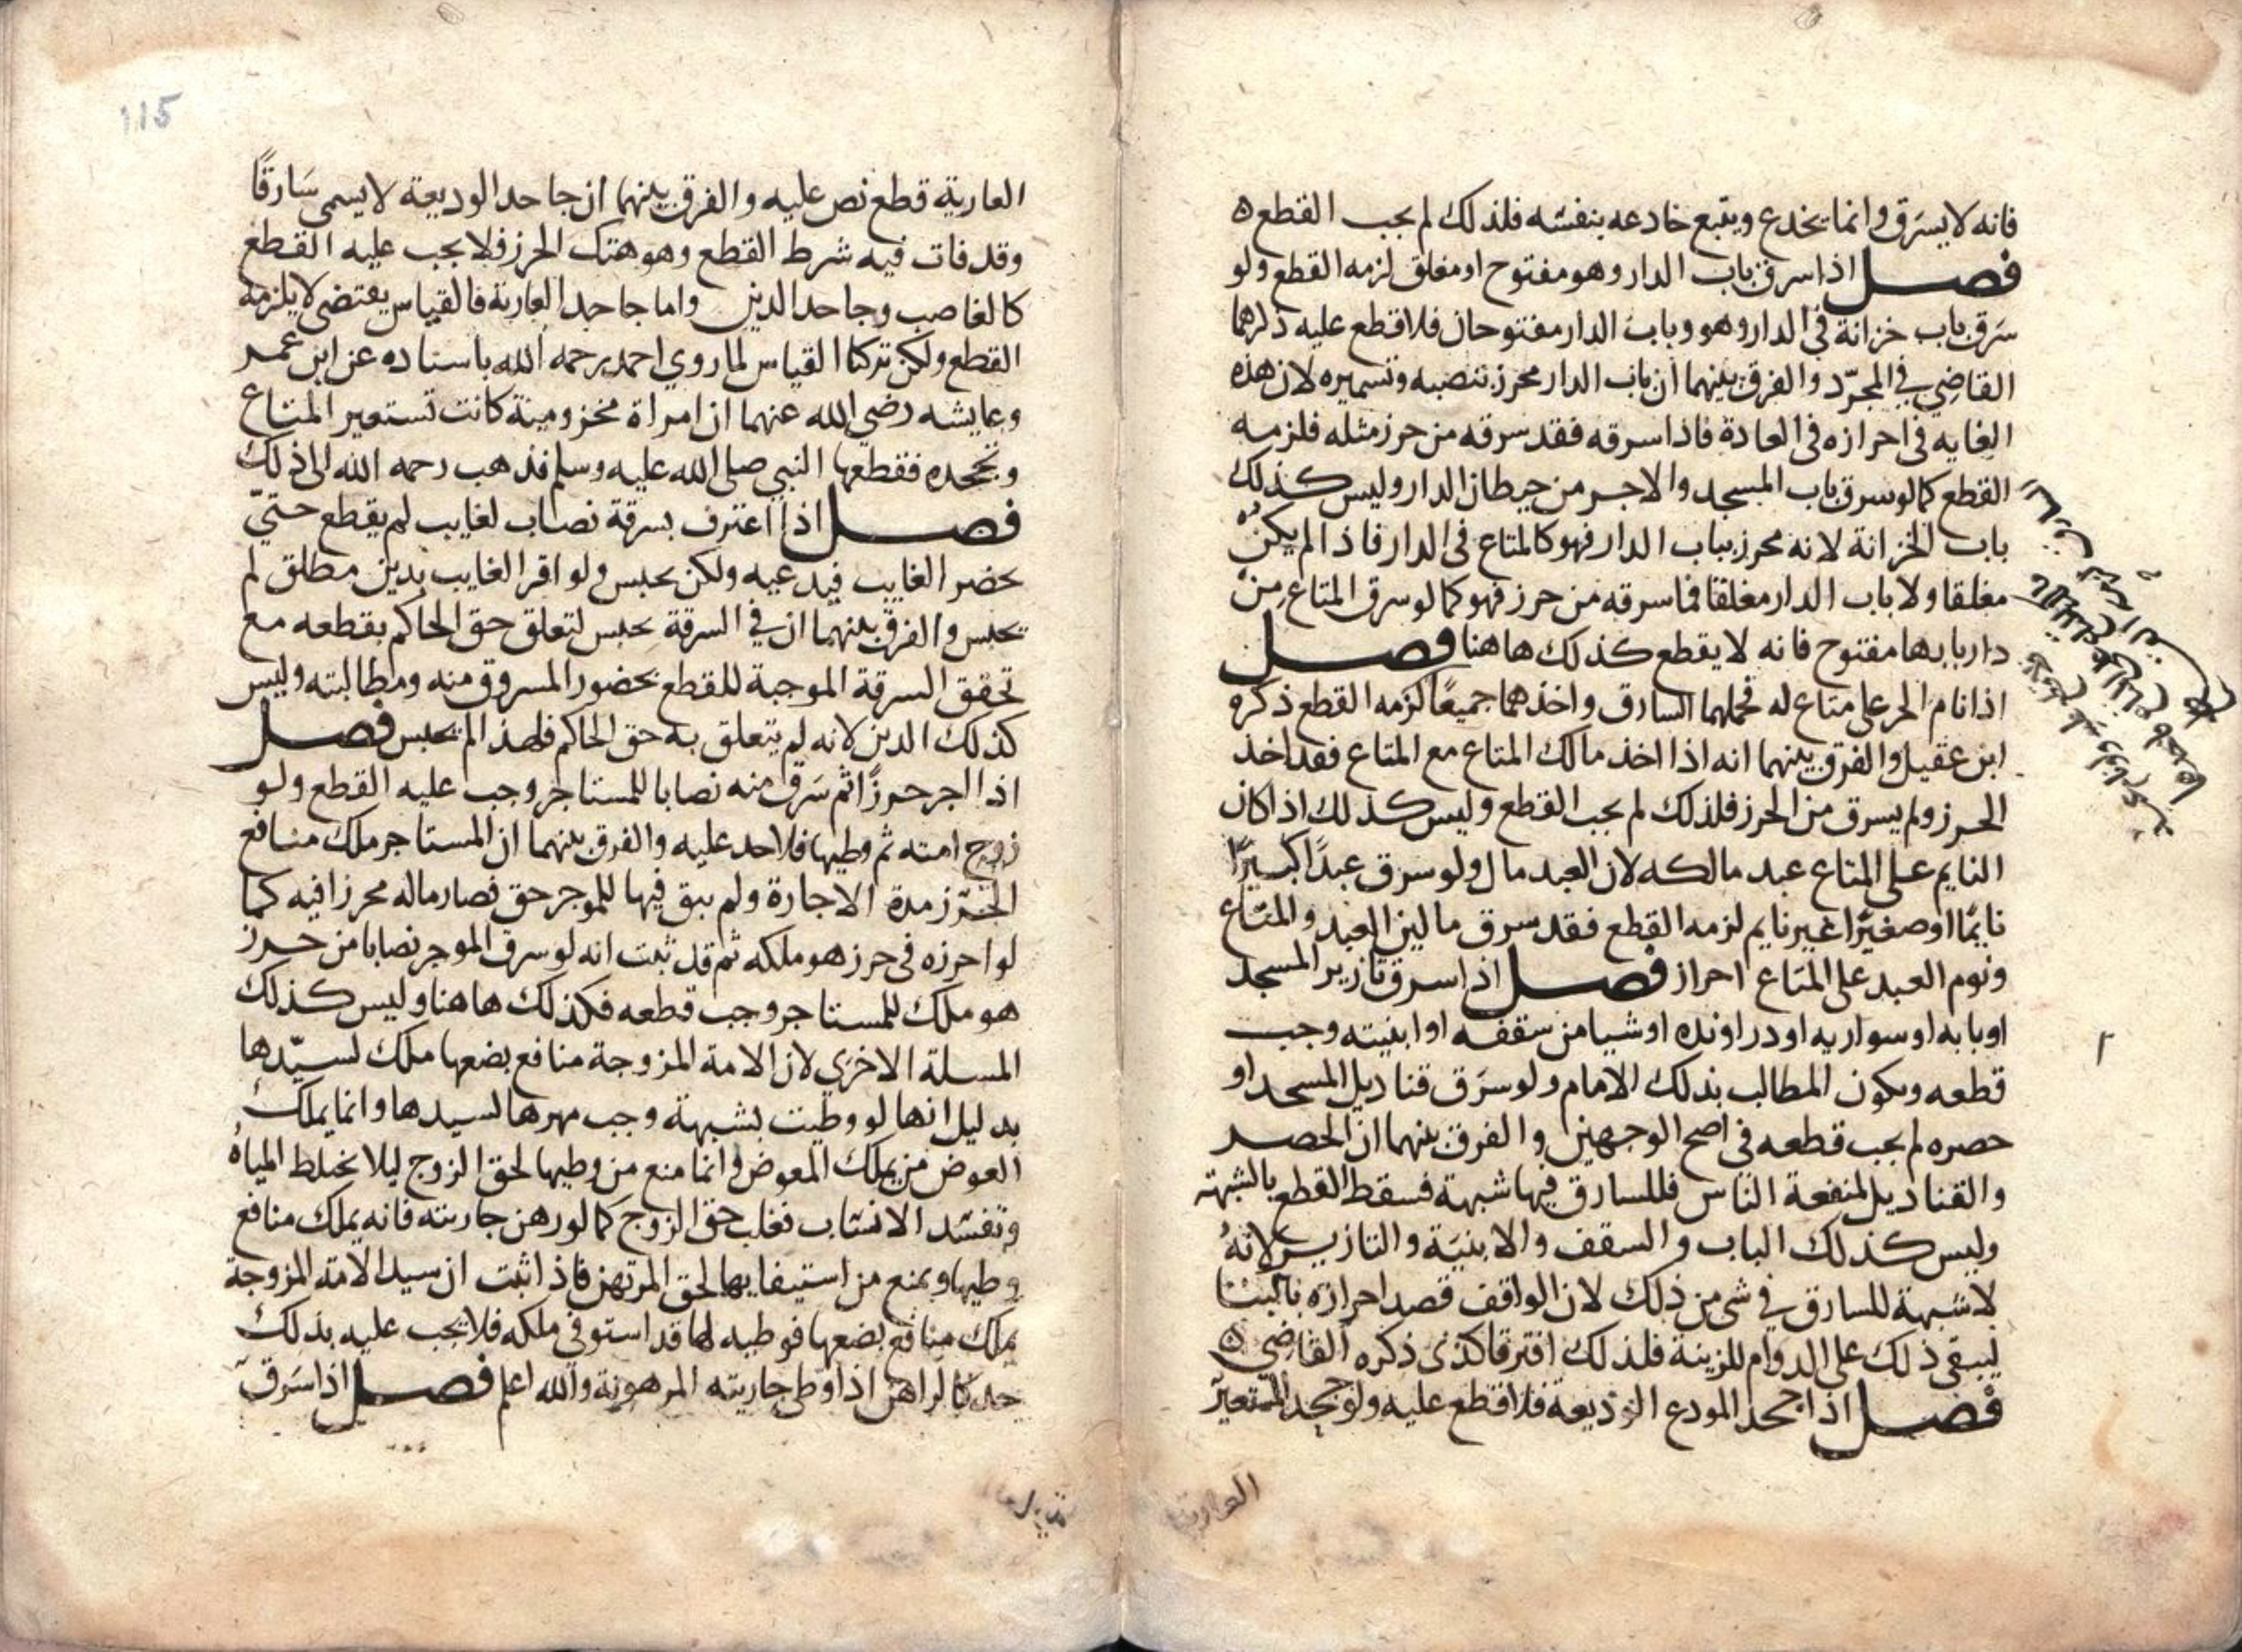 فانه لا يسرق وانما يخدع ويتبع خادعه بنفسه فلذلك لم يجب القطع ه
فصل اذا سرق باب الدار وهو مفتوح او مغلق لزمه القطع ولو
سرق باب خزانة في الدار وهو وباب الدار مفتوحان فلا قطع عليه ذكرهما
القاضي في المجرّد والفرق بينهما ان باب الدار محرز بنصبه وتسميره لان هذه
الغايه في احرازه في العادة فاذا سرقه فقد سرقه من حرز مثله فلزمه
القطع كما لو سرق باب المسجد والاجر من حيطان الدار وليس كذلك
باب الخزانة لانه محرز بباب الدار فهو كالمتاع في الدار فاذا لم يكن
مغلقا ولا باب الدار مغلقا فما سرقه من حرز فهو كما لو سرق المتاع من
دار بابها مفتوح فانه لا يقطع كذلك هاهنا فصل
اذا نام الحر على متاع له فحملهما السارق واخذهما جميعًا لزمه القطع ذكره
ابن عقيل والفرق بينهما انه اذا اخذ مالك المتاع مع المتاع فقد اخذ
الحرز ولم يسرق من الحرز فلذلك لم يجب القطع وليس كذلك اذا كان
النايم على المتاع عبد مالكه لان العبد مال ولو سرق عبدًا كبيرًا
نايمًا او صغيرًا غير نايم لزمه القطع فقد سرق مالين العبد والمتاع
ونوم العبد على المتاع احراز فصل اذا سرق تازير المسجد
او بابه او سواريه او درابزنده او شيا من سقفه او ابنيته وجب
قطعه ويكون المطالب بذلك الامام ولو سرق قناديل المسجد او
حصره لم يجب قطعه في اصح الوجهين والفرق بينهما ان الحصر
والقناديل لمنفعة الناس فللسارق فيها شبهة فسقط القطع بالشبهة
وليس كذلك الباب والسقف والابنية والتازير لانه
لا شبهة للسارق في شي من ذلك لان الواقف قصد احرازه بالبنا
ليبقى ذلك على الدوام للزينة فلذلك افترقا كذى ذكره القاضي ه
فصل اذا جحد المودع الوديعة فلا قطع عليه ولو جحد المستعير
العارية
115
العارية قطع نص عليه والفرق بينهما ان جاحد الوديعة لا يسمى سارقًا
وقد فات فيه شرط القطع وهو هتك الحرز فلا يجب عليه القطع
كالغاصب وجاحد الدين واما جاحد العارية فالقياس يقتضي لا يلزمه
القطع ولكن تركنا القياس لما روي احمد رحمه الله باسناده عن ابن عمر
وعايشه رضي الله عنهما ان امراة مخزومية كانت تستعير المتاع
وتجحده فقطعها النبي صلى الله عليه وسلم فذهب رحمه الله الى ذلك
فصل اذا اعترف بسرقة نصاب لغايب لم يقطع حتّى
يحضر الغايب فيدعيه ولكن يحبس ولو اقر الغايب بدين مطلق لم
يحبس والفرق بينهما ان في السرقة يحبس لتعلق حق الحاكم بقطعه مع
تحقق السرقة الموجبة للقطع بحضور المسروق منه ومطالبته وليس
كذلك الدين لانه لم يتعلق به حق الحاكم فلهذا لم يحبس فصل
اذا اجر حرزًا ثم سرق منه نصابا للمستاجر وجب عليه القطع ولو
زوج امته ثم وطيها فلا حد عليه والفرق بينهما ان المستاجر ملك منافع
الحرز مدة الاجارة ولم يبق فيها للموجر حق فصار ماله محرزا فيه كما
لو احرزه في حرز هو ملكه ثم قد ثبت انه لو سرق الموجر نصابا من حرز
هو ملك للمستاجر وجب قطعه فكذلك هاهنا وليس كذلك
المسلة الاخرى لان الامة المزوجة منافع بضعها ملك لسيّدها
بدليل انها لو وطيت بشبهة وجب مهرها لسيدها وانما يملك
العوض من يملك المعوض وانما منع من وطيها لحق الزوج ليلا يختلط المياه
وتفسد الانساب فغلب حق الزوج كما لو رهن جاريته فانه يملك منافع
وطيها ويمنع من استيفايها لحق المرتهن فاذا ثبت ان سيد الامة المزوجة
يملك منافع بضعها فوطيه لها قد استوفى ملكه فلا يجب عليه بذلك
حد كالراهن اذا وطى جاريته المرهونة والله اعلم فصل اذا سرق